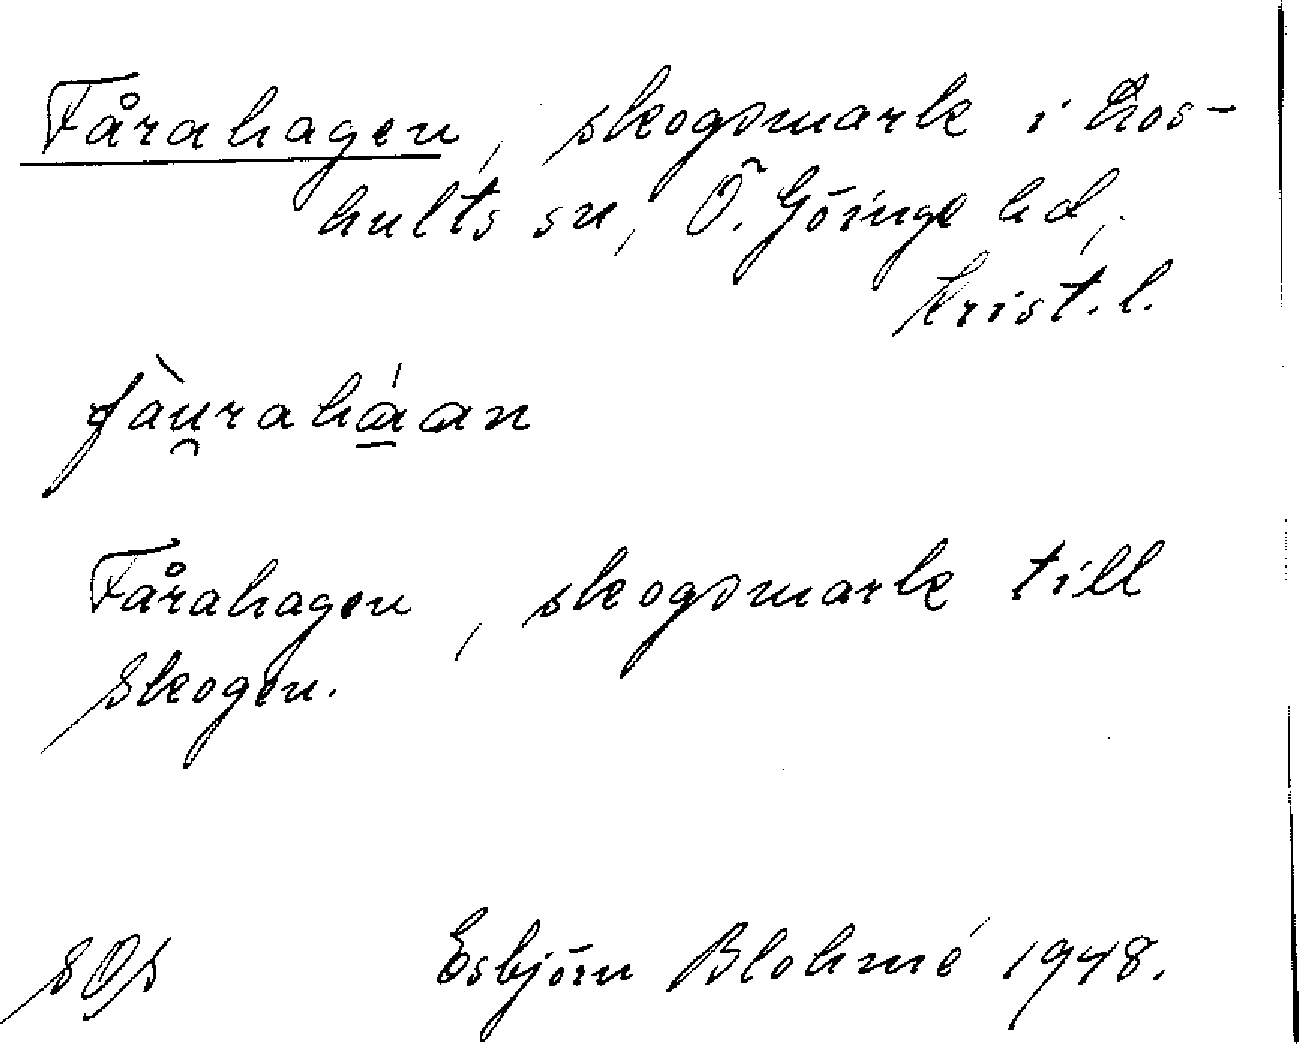 Fårahagen, skogsmark i Los-
hults sn, Ö. Göinge hd,
Krist. l.
fàu̯rahá̱an
Fårahagen, skogsmark till
Skogen.
SOS Esbjörn Blohmé 1948.